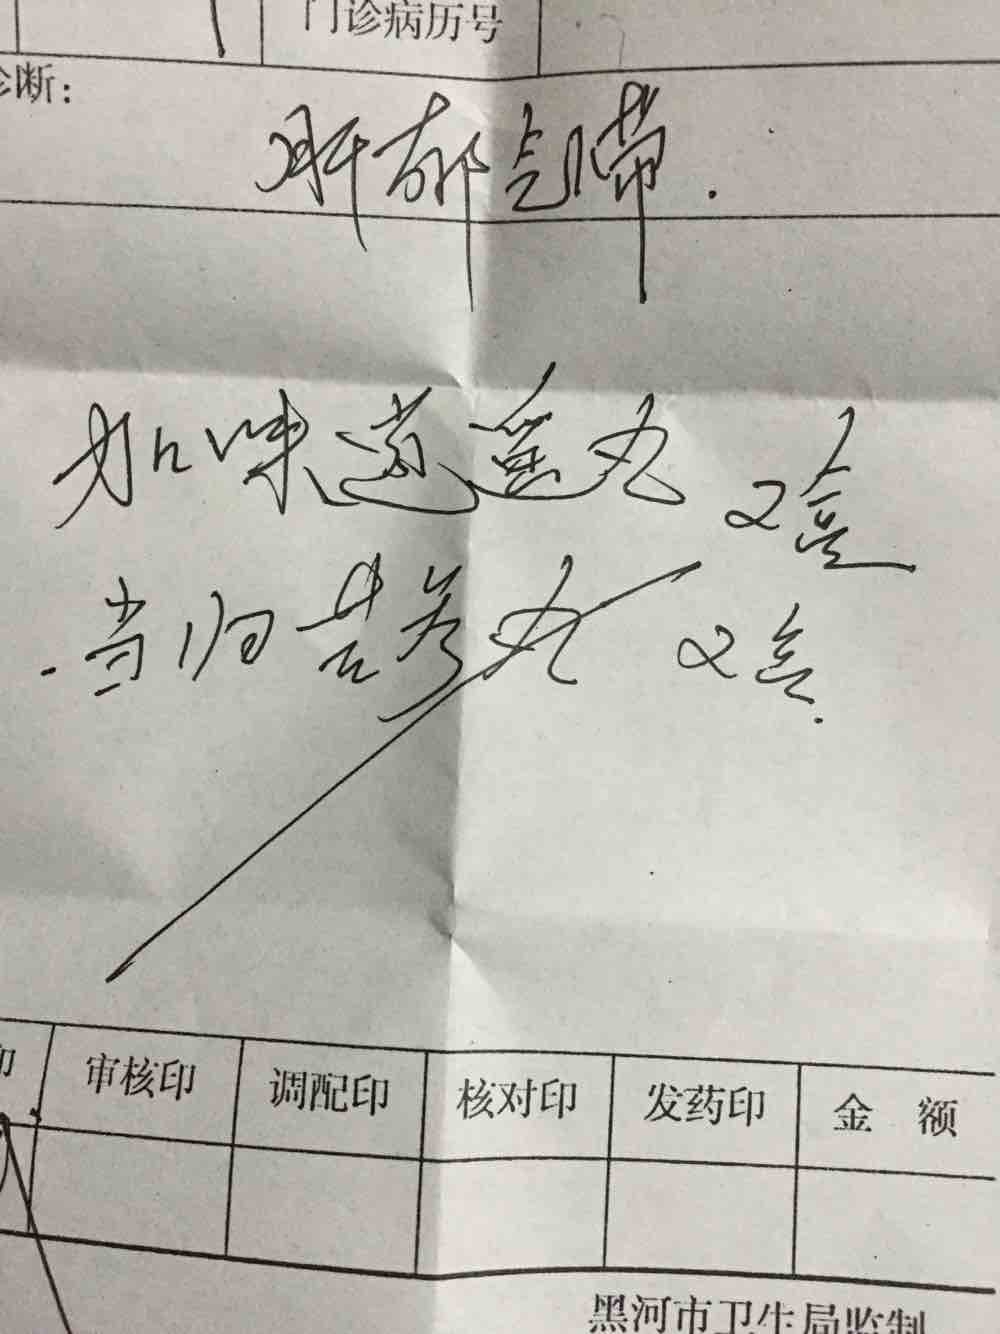 门诊病历号
诊断:
肝郁气滞.
加味逍遥丸 2盒
当归苦参丸 2盒.
印 审核印 调配印 核对印 发药印 金 额
黑河市卫生局监制